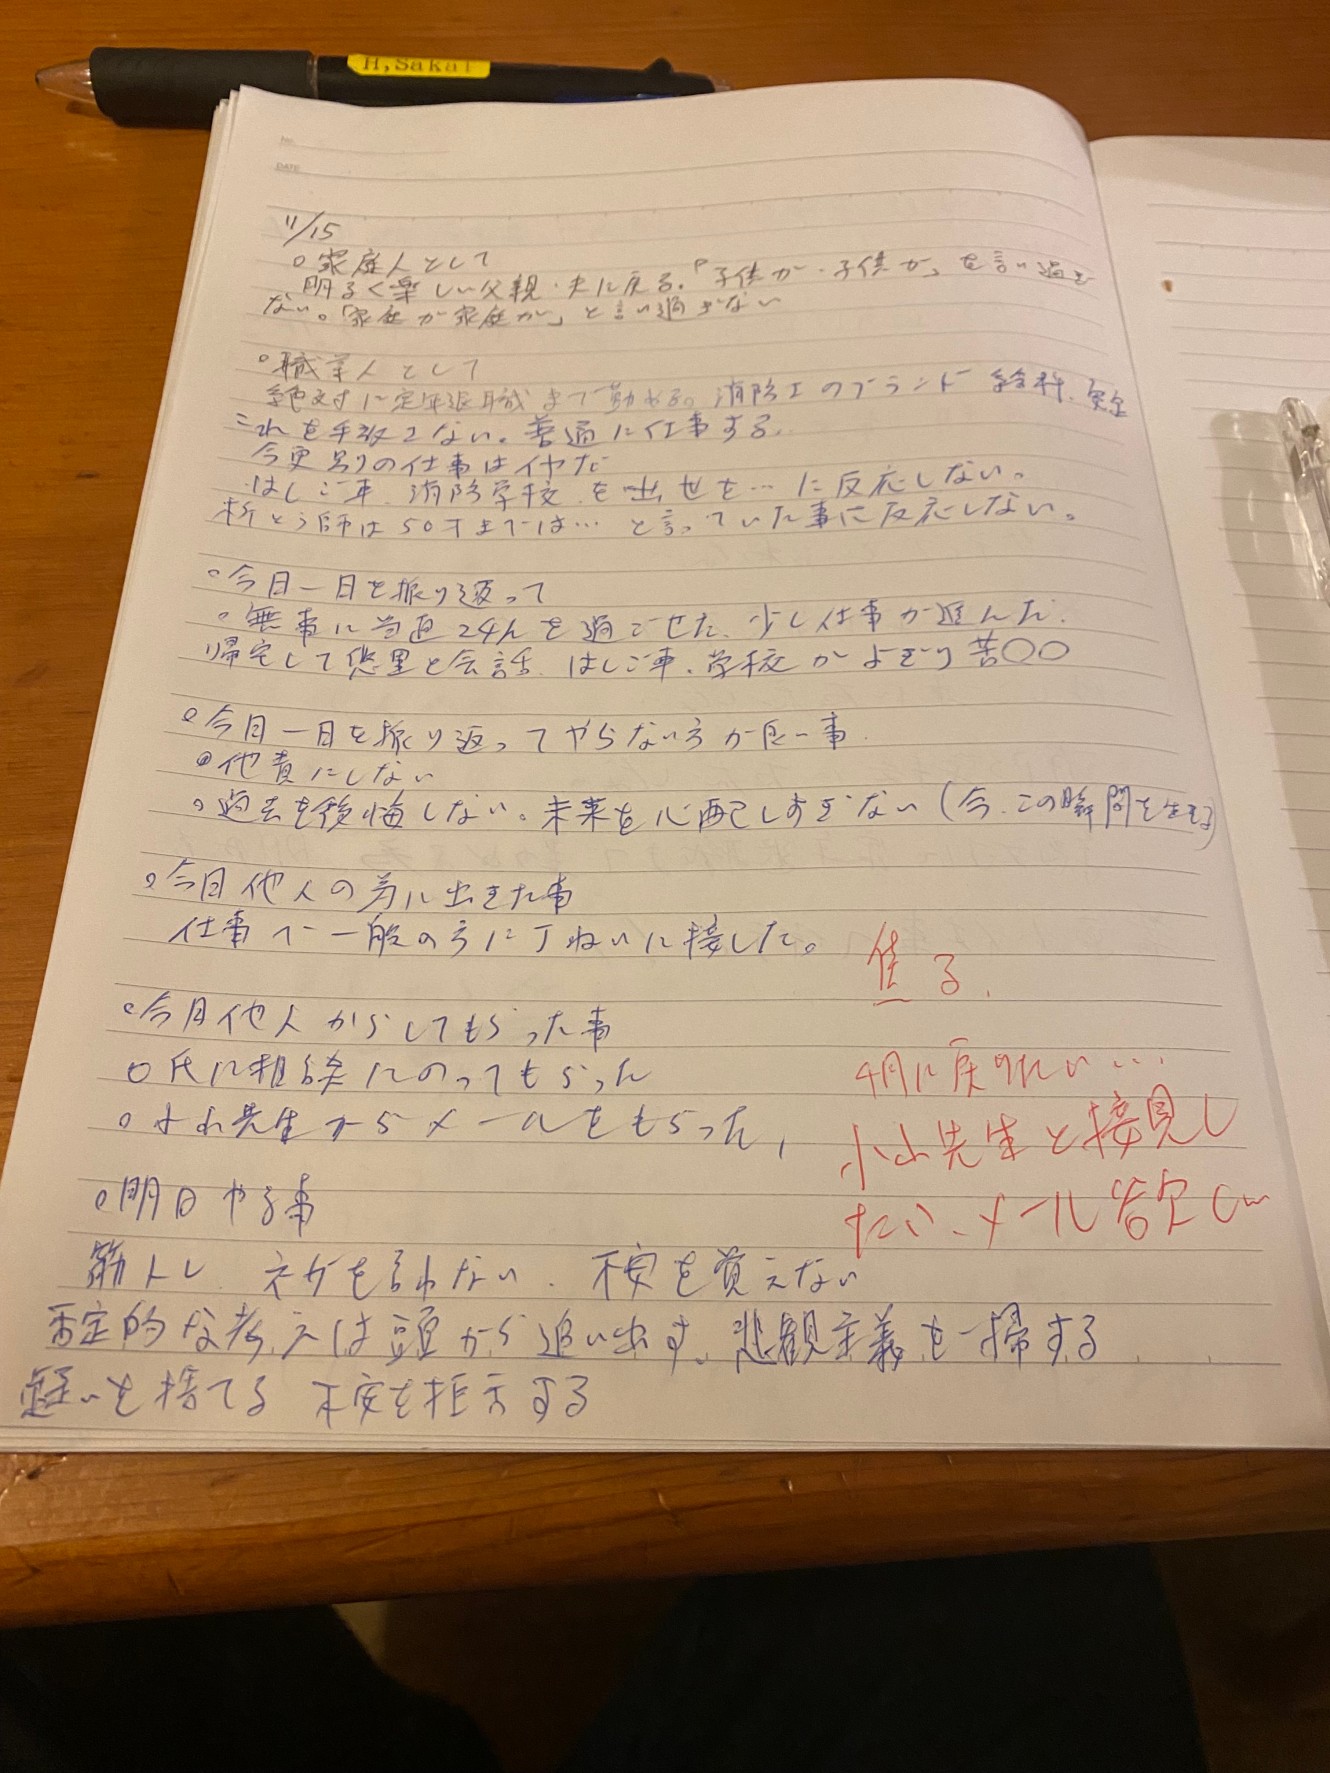 H,Sakai
No.
DATE
11/15
○家庭人として
明るく楽しい父親・夫に戻る。「子供が・子供が」を言い過ぎ
ない。「家庭が家庭が」と言い過ぎない
○職業人として
絶対に定年退職まで勤める。消防士のブランド 給料、安定
これを手放さない。普通に仕事する。
今更別の仕事はイヤだ
はしご車、消防学校、を出世を…に反応しない。
祈とう師は50才までは…と言っていた事に反応しない。
○今日一日を振り返って
○無事に当直24hを過ごせた、少し仕事が進んだ。
帰宅して悠里と会話、はしご車、学校がよぎり苦○○
○今日一日を振り返ってやらない方が良い事
○他責にしない
○過去を後悔しない。未来を心配しすぎない(今、この瞬間を生きる)
○今日他人の為に出きた事
仕事で一般の方に丁ねいに接した。
焦る、
○今日他人からしてもらった事
○氏に相談にのってもらった
○小山先生からメールをもらった、
4月に戻りたい…
小山先生と接見し
たい、メール欲しい
○明日やる事
筋トレ、ネガを言わない、不安を覚えない
否定的な考えは頭から追い出す、悲観主義を一掃する
を捨てる 不安を拒否する